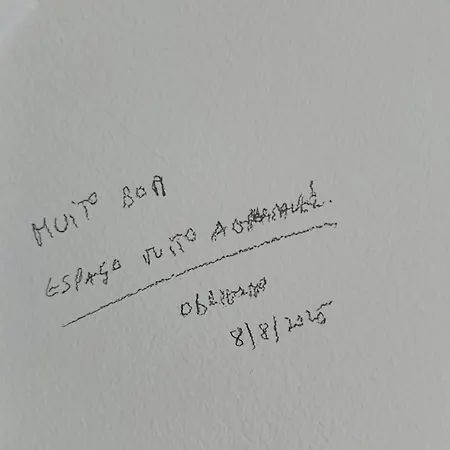 MUITO BOM
ESPAÇO MUITO AGRADÁVEL.
OBRIGADO
8/8/2025